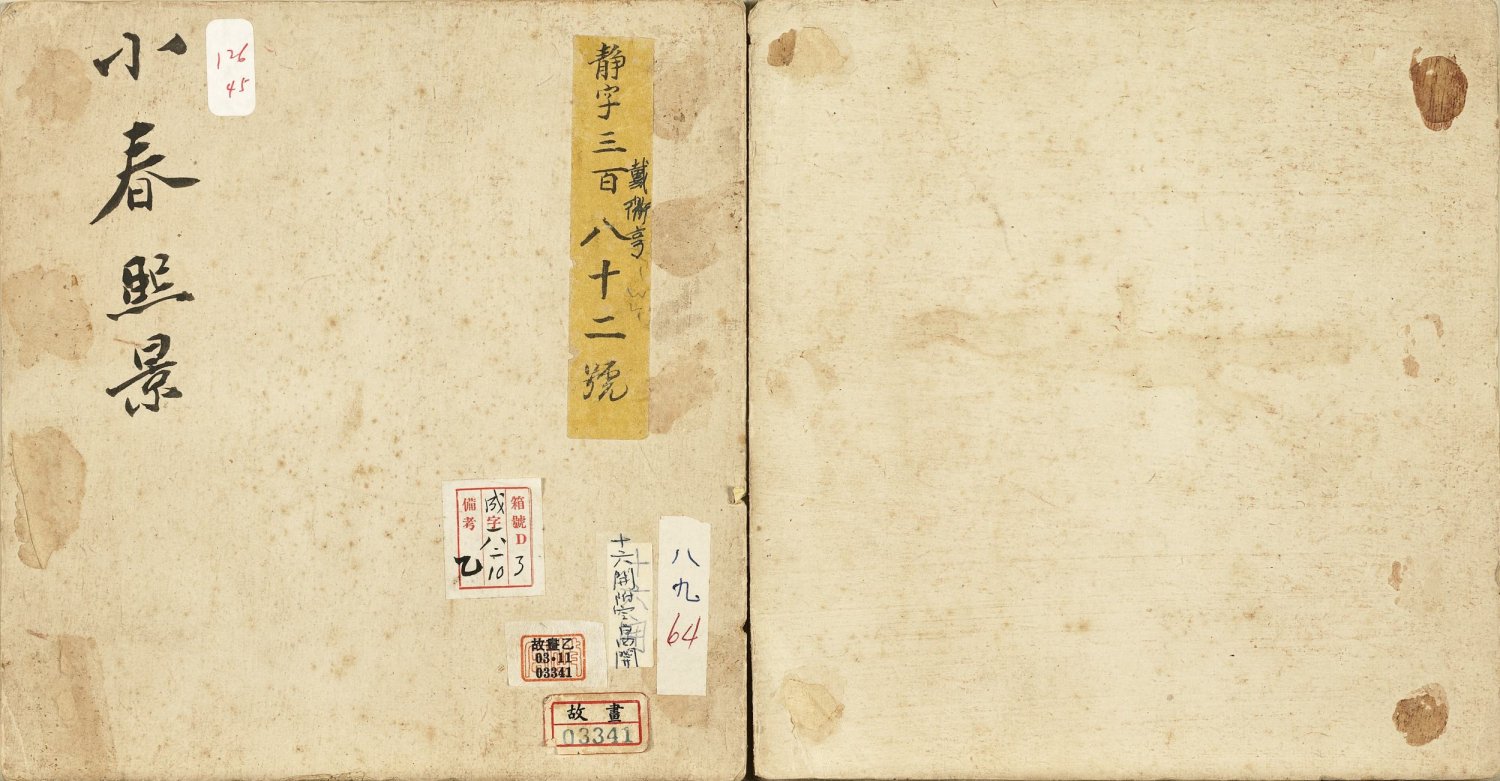 小春熙景
126
45
静字三百八十二號
戴衢亨
箱號D 3
成字一八二10
備考 乙
十六開附空畐開
八九
64
故畫乙
03-11
03341
故畫
03341